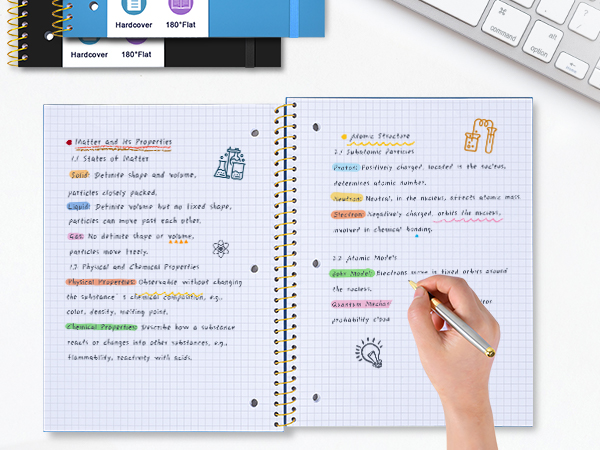 Hardcover 180°Flat
Hardcover 180°Flat
command
alt
option
Matter and Its Properties
1.1 States of Matter
Solid: Definite shape and volume,
particles closely packed.
Liquid: Definite volume but no fixed shape,
particles can move past each other.
Gas: No definite shape or volume,
particles move freely.
1.2 Physical and Chemical Properties
Physical Properties: Observable without changing
the substance's chemical composition, e.g.,
color, density, melting point.
Chemical Properties: Describe how a substance
reacts or changes into other substances, e.g.,
flammability, reactivity with acids.
Atomic Structure
2.1 Subatomic Particles
Proton: Positively charged, located in the nucleus,
determines atomic number.
Neutron: Neutral, in the nucleus, affects atomic mass.
Electron: Negatively charged, orbits the nucleus,
involved in chemical bonding.
2.2 Atomic Models
Bohr Model: Electrons move in fixed orbits around
the nucleus.
Quantum
probability cloud